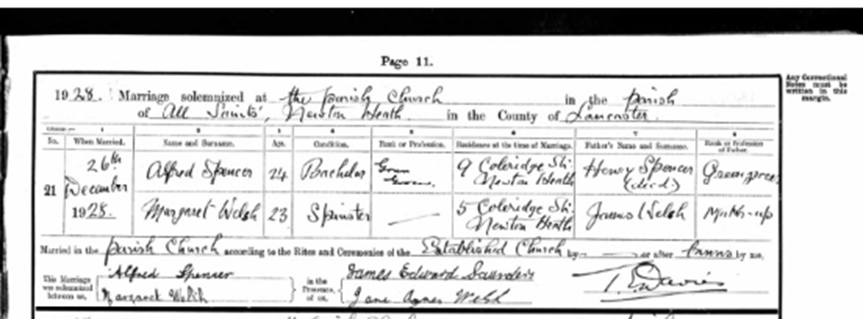 Page 11.
Any Corrections
Notes must be
written in this
margin.
1928. Marriage solemnized at the Parish Church in the Parish
of All Saints', Newton Heath in the County of Lancaster.
No. When Married. Name and Surname. Age. Condition. Rank or Profession. Residence at the time of Marriage. Father's Name and Surname. Rank or Profession of Father.
21 26th December 1928. Alfred Spencer 24 Bachelor 9 Coleridge St. Newton Heath Henry Spencer (died) Greengrocer
Margaret Welsh 23 Spinster — 5 Coleridge St. Newton Heath James Welsh
Married in the Parish Church according to the Rites and Ceremonies of the Established Church by — or after Banns by me,
This Marriage was solemnized between us, Alfred Spencer Margaret Welsh in the Presence of us, James Edward Saunders Jane Agnes Welsh T. E. Davies